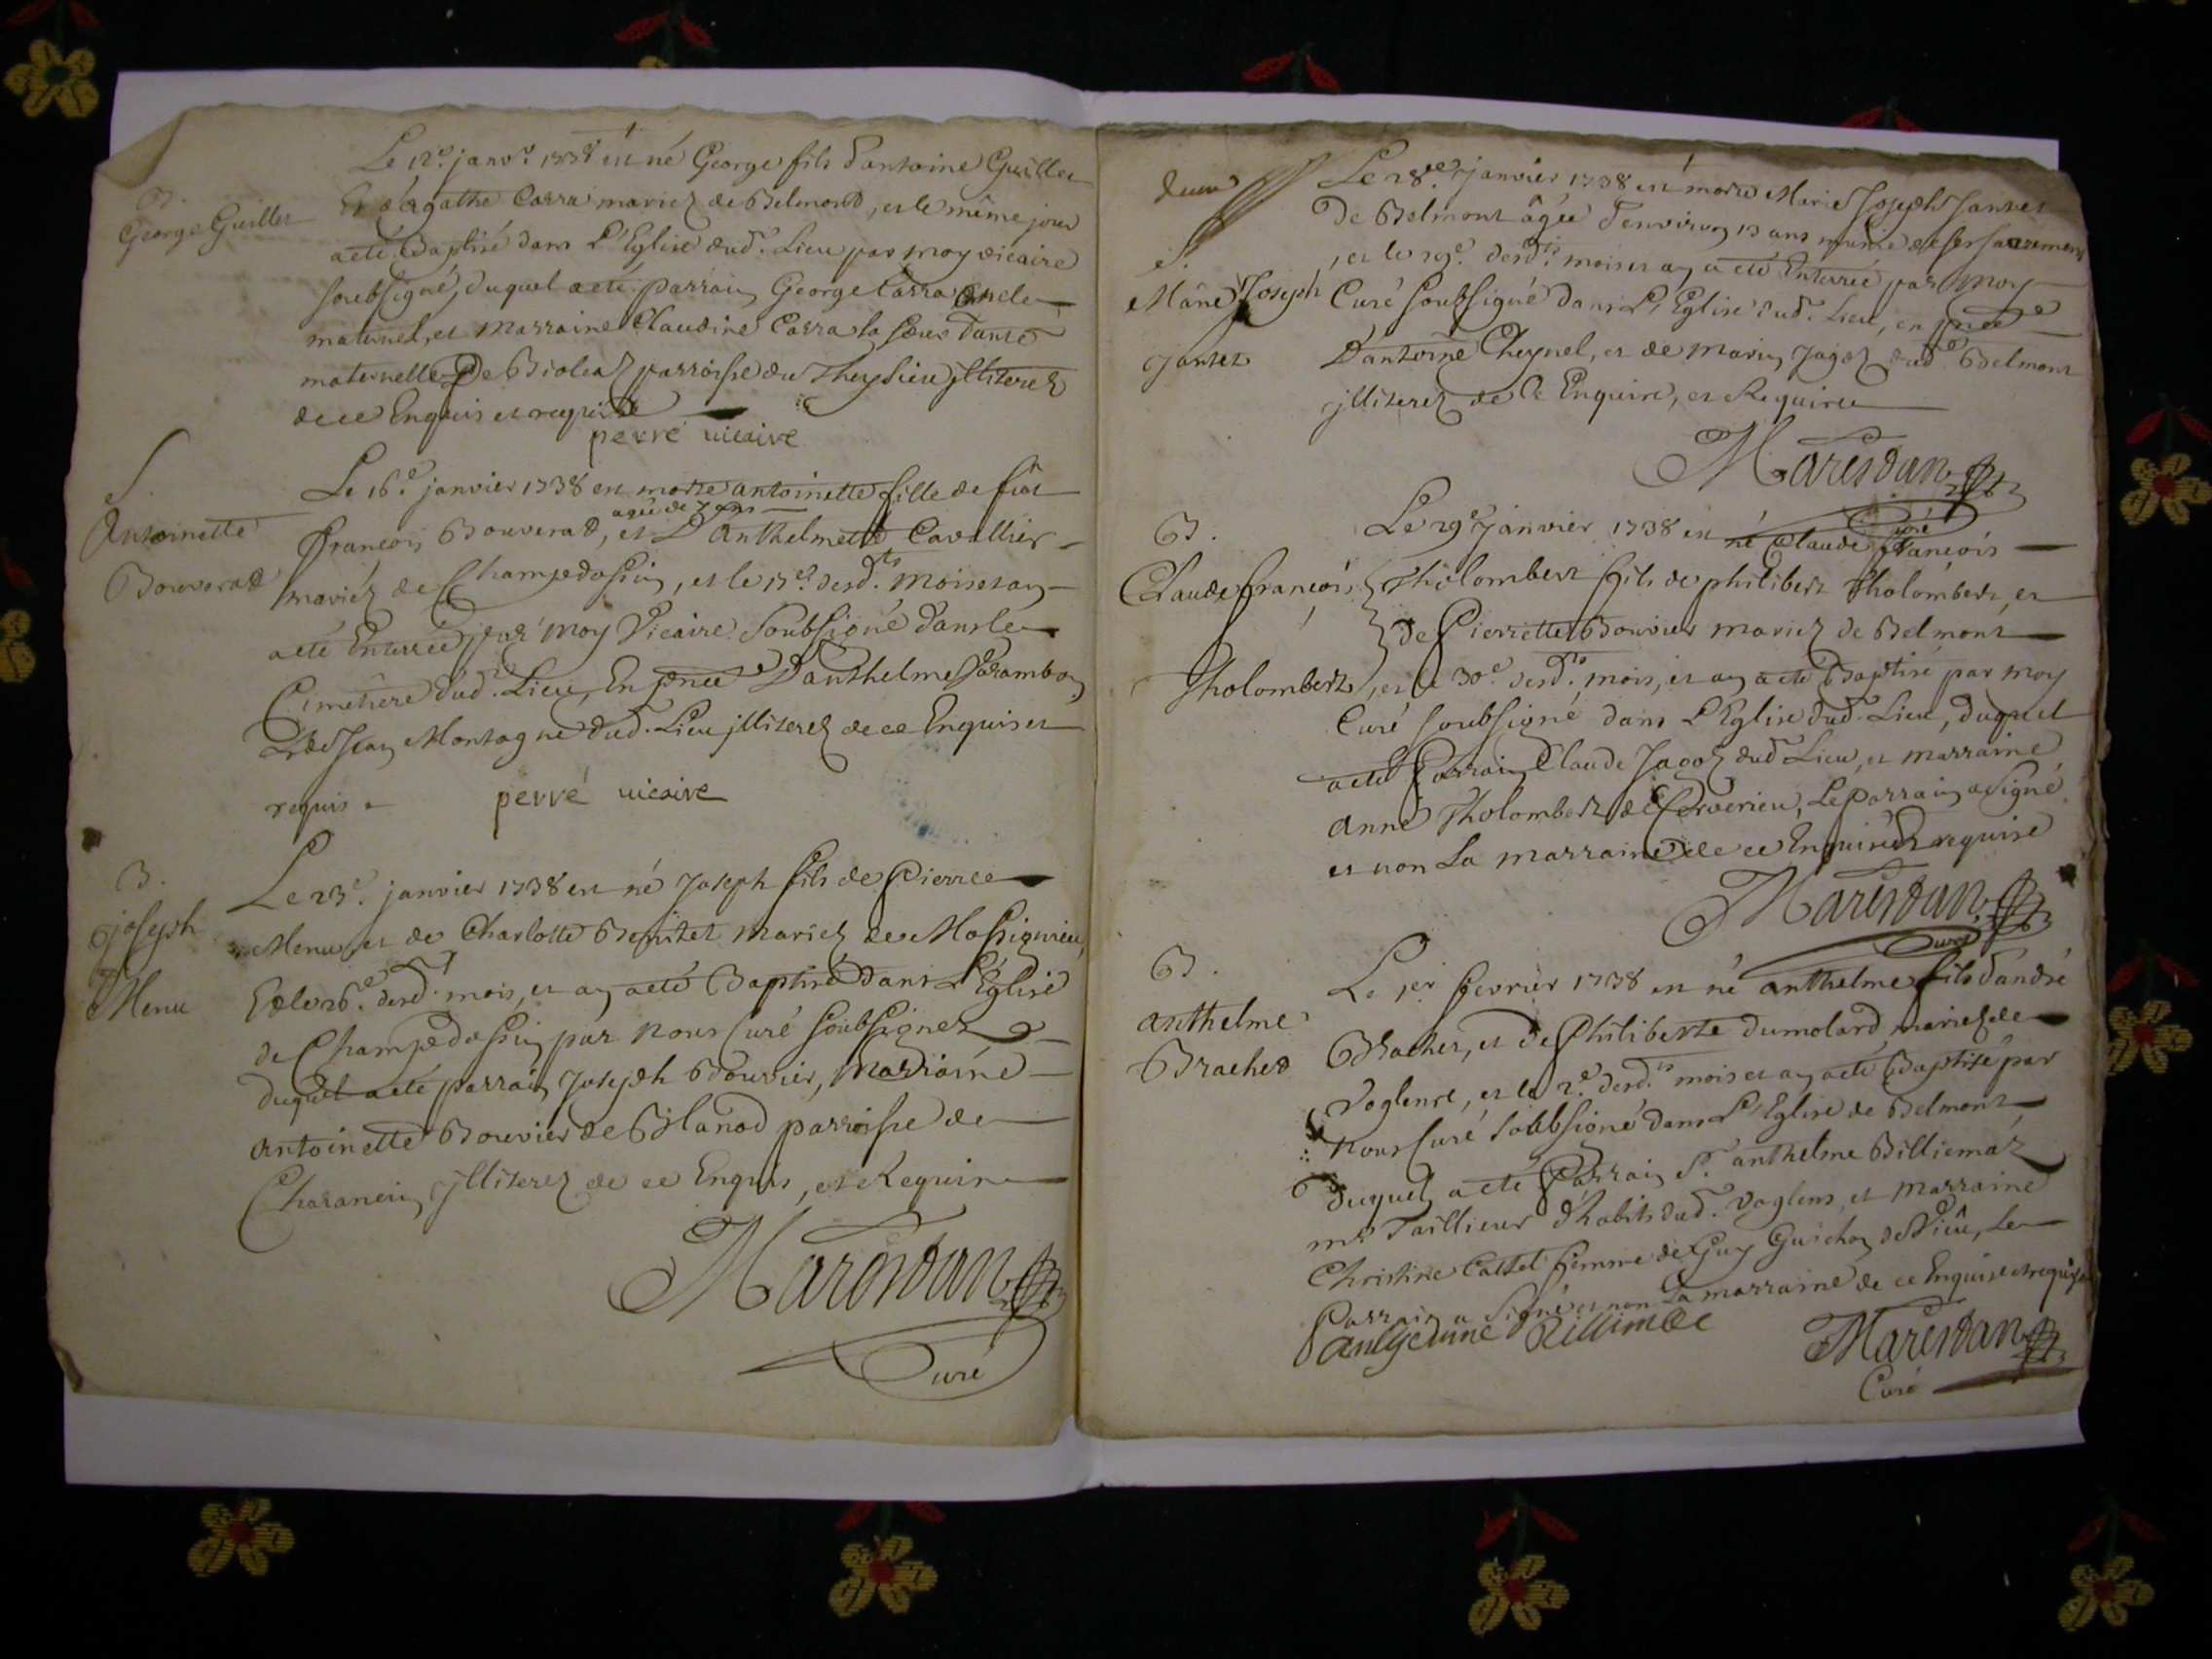 B.
George Guillet
Le 12e. janvr. 1738 est né George fils d'antoine Guillet
Et d'agathe Carra mariez de Belmont, et le même jour
a eté Baptisé dans L'Eglise dud. Lieu par moy vicaire
soubsigné, duquel a eté parrain George Carra oncle
maternel, et marraine Claudine Carra la sœur tante
maternelle De Bioleaz parroisse du Theysieu illiterez
de ce Enquis et requis
perré vicaire
S.
Antoinette
Bouverad
Le 16e. janvier 1738 est morte antoinette fille de feu
agée de 7 ans
françois Bouverad, et D'anthelmette Cavallier
mariéz de Champedossin, et le 17e. desdts. mois et an
a eté Enterrée par moy Vicaire Soubsigné dans le
Cimetiere dud. Lieu, En pnce D'anthelme
Et de Jean Montagne dud. Lieu illiterez de ce Enquis et
requis
perré vicaire
B.
joseph
Menu
Le 23e. janvier 1738 est né Joseph fils de Pierre
Menu, et de Charlotte mariez de Massignieu,
Et le 26e. desd. mois, et an a eté Baptisé dans L'Eglise
de Champedossin par nous Curé soubsignez
duquel a eté parrain Joseph Bouvier, Marraine
antoinette Bouvier de Blanod parroisse de
Charancin illiterez de ce Enquis, et Requis
Marestan
Curé
S.
Marie Joseph
jantet
Le 28e. janvier 1738 est morte Marie Joseph Jantet
De Belmont âgée d'environ 13 ans munie de ses sacremens
, et le 29e. desdts. mois et an a eté Enterrée par moy
Curé soubsigné dans L'Eglise dud. Lieu, en pnce
D'antoine Cheynel, et de marin Jagoz dud. Belmont
illiterez de ce Enquire, et Requires
Marestan
Curé
B.
Claude françois
Tholombert
Le 29e. janvier 1738 est né Claude françois
Tholombert fils de philibert Tholombert, et
de Pierrette Bouvier mariez de Belmont
, et le 30e. desdts. mois, et an a eté Baptisé par moy
Curé soubsigné dans L'Eglise dud. Lieu, duquel
a eté Parrain Claude Jagoz dud. Lieu, et marraine
anne Tholombert de Cerverieu, Le parrain a signé
et non La marraine de ce Enquise et requise
Marestan
Curé
B.
anthelme
Bracher
Le 1er fevrier 1738 est né anthelme fils d'andré
Bracher, et de Philiberte dumolard mariez de
Voglens, et le 2e. desdts. mois et an a eté Baptisé par
nous Curé soubsigné dans L'Eglise de Belmont
Duquel a eté Parrain Sr. anthelme Billiemaz
mr Taillieur d'habits dud. Voglens, et marraine
Christine Cattet femme de Guy Guichon de Vieu, Le
Parrain a signé et non La marraine de ce Enquise et requise
Marestan
Curé